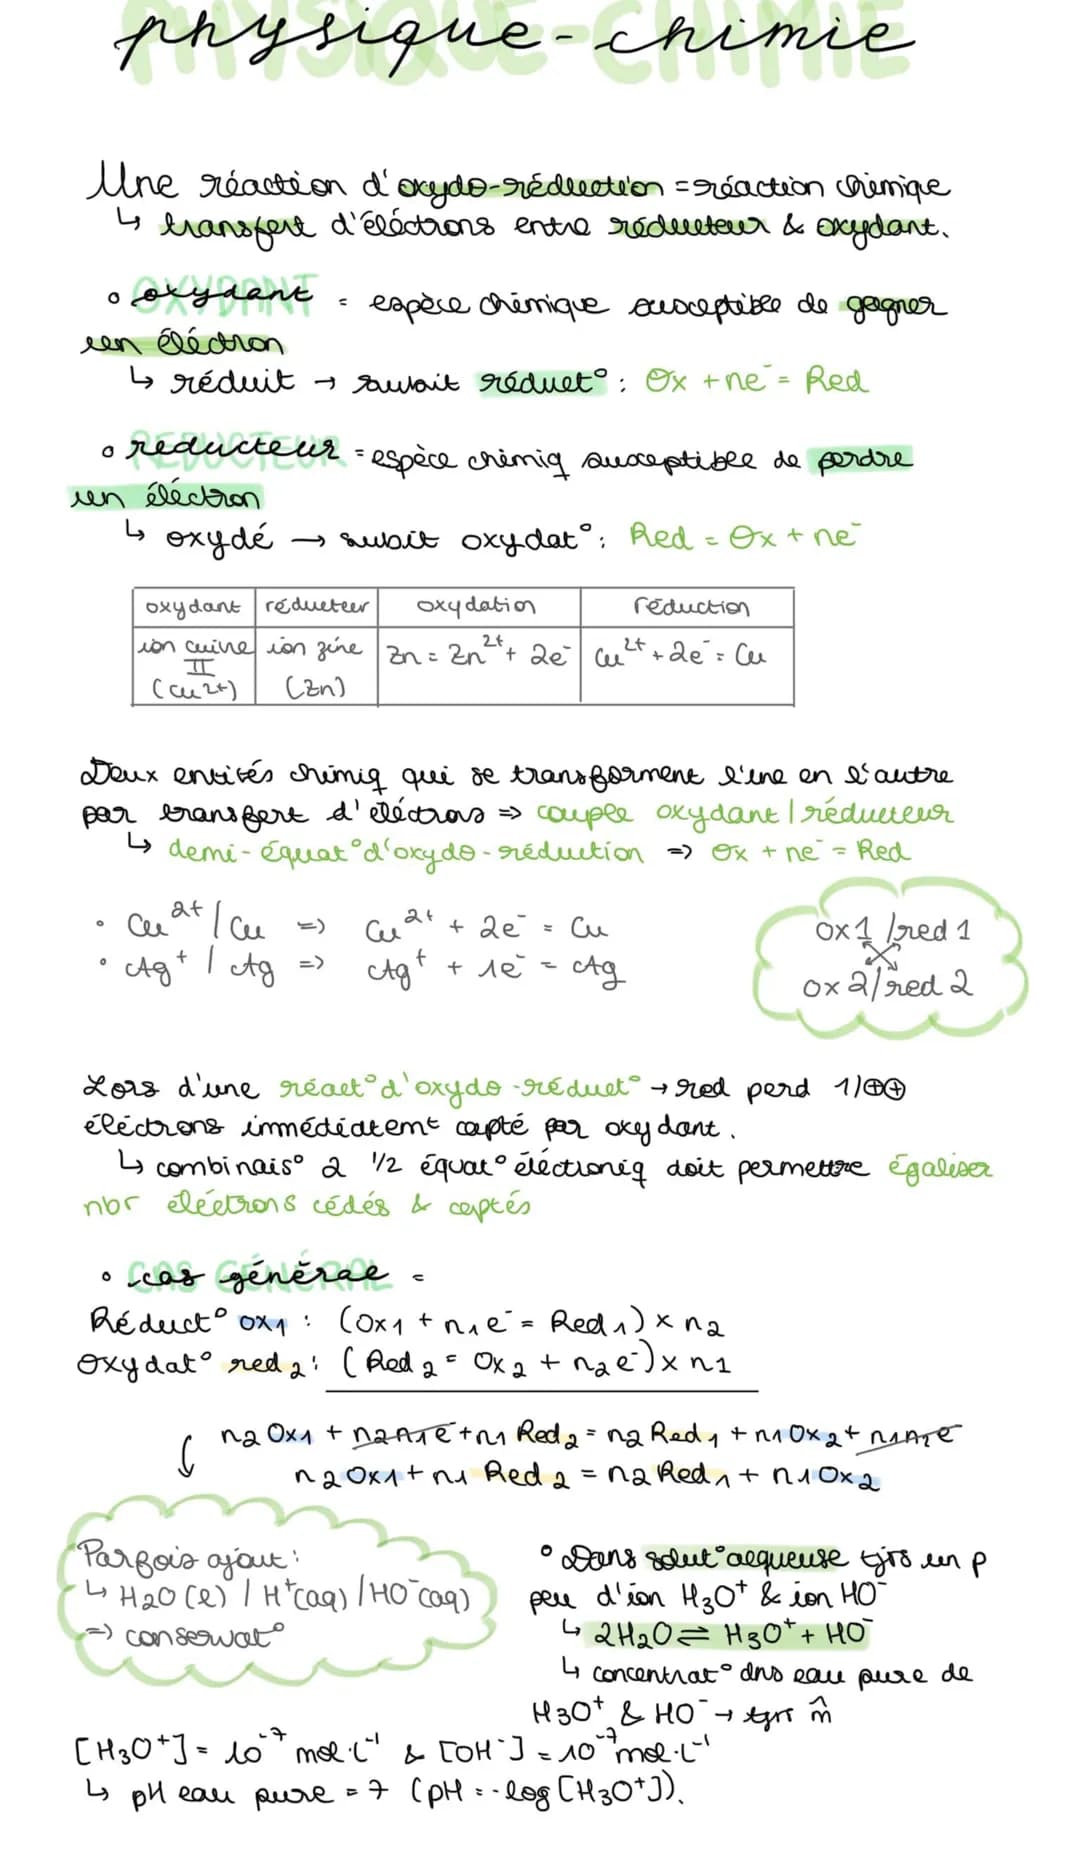 physique-chimie
Une réaction d'oxydo-réduction = réaction chimique
↳ transfert d'éléctrons entre réducteur & oxydant.
◦ oxydant = espèce chimique susceptible de gagner
un éléctron
↳ réduit → subait réduct° : Ox + ne⁻ = Red
◦ réducteur = espèce chimiq susceptible de perdre
un éléctron
↳ oxydé → subit oxydat° : Red = Ox + ne⁻
oxydant | réducteur | oxydation | réduction
ion cuivre II (Cu²⁺) | ion zinc (Zn) | Zn = Zn²⁺ + 2e⁻ | Cu²⁺ + 2e⁻ = Cu
Deux entités chimiq qui se transforment l'une en l'autre
par transfert d'éléctrons => couple oxydant | réducteur
↳ demi-équat° d'oxydo-réduction => Ox + ne⁻ = Red
• Cu²⁺ | Cu => Cu²⁺ + 2e⁻ = Cu
• Ag⁺ | Ag => Ag⁺ + 1e⁻ = Ag
Ox1 / red 1
Ox 2/ red 2
Lors d'une réact° d'oxydo-réduct° → red perd 1/⊕⊕
éléctrons immédiatemt capté par oxydant.
↳ combinais° 2 1/2 équat° éléctroniq doit permettre égaliser
nbr éléctrons cédés & captés
◦ cas général =
Réduct° ox₁ : (Ox₁ + n₁e⁻ = Red₁) × n₂
Oxydat° red₂ : (Red₂ = Ox₂ + n₂e⁻) × n₁
n₂Ox₁ + n₂n₁e⁻ + n₁Red₂ = n₂Red₁ + n₁Ox₂ + n₁n₂e⁻
n₂Ox₁ + n₁Red₂ = n₂Red₁ + n₁Ox₂
Parfois ajout :
↳ H₂O (l) / H⁺(aq) / HO⁻(aq)
=> conservat°
◦ Dans solut° aqueuse tjrs un p
peu d'ion H₃O⁺ & ion HO⁻
↳ 2H₂O ⇌ H₃O⁺ + HO⁻
↳ concentrat° dns eau pure de
H₃O⁺ & HO⁻ → tjrs m̂
[H₃O⁺] = 10⁻⁷ mol·L⁻¹ & [OH⁻] = 10⁻⁷ mol·L⁻¹
↳ pH eau pure = 7 (pH = -log [H₃O⁺]).